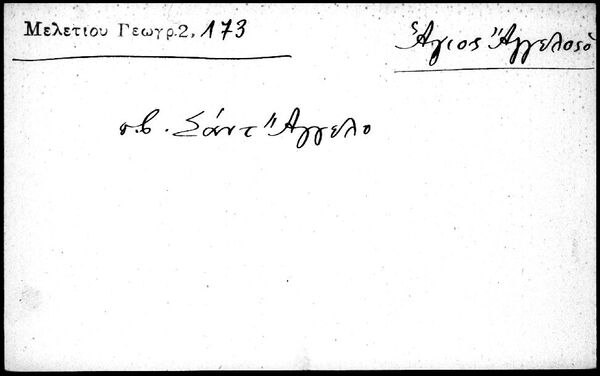 Μελετίου Γεωγρ.2, 173
Ἅγιος Ἄγγελος ὁ
σ.β. Σάντ Ἄγγελο